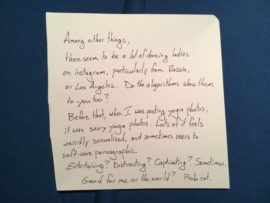 Among other things,
there seem to be a lot of dancing ladies
on instagram, particularly from Russia,
or Los Angeles. Do the algorithms show them
to you too?
Before that, when I was posting yoga photos,
it was sexy yoga photos. Lots of it feels
weirdly sexualized, and sometimes veers to
soft-core pornographic.
Entertaining? Distracting? Captivating? Sometimes.
Good for me or the world? Prob. not.